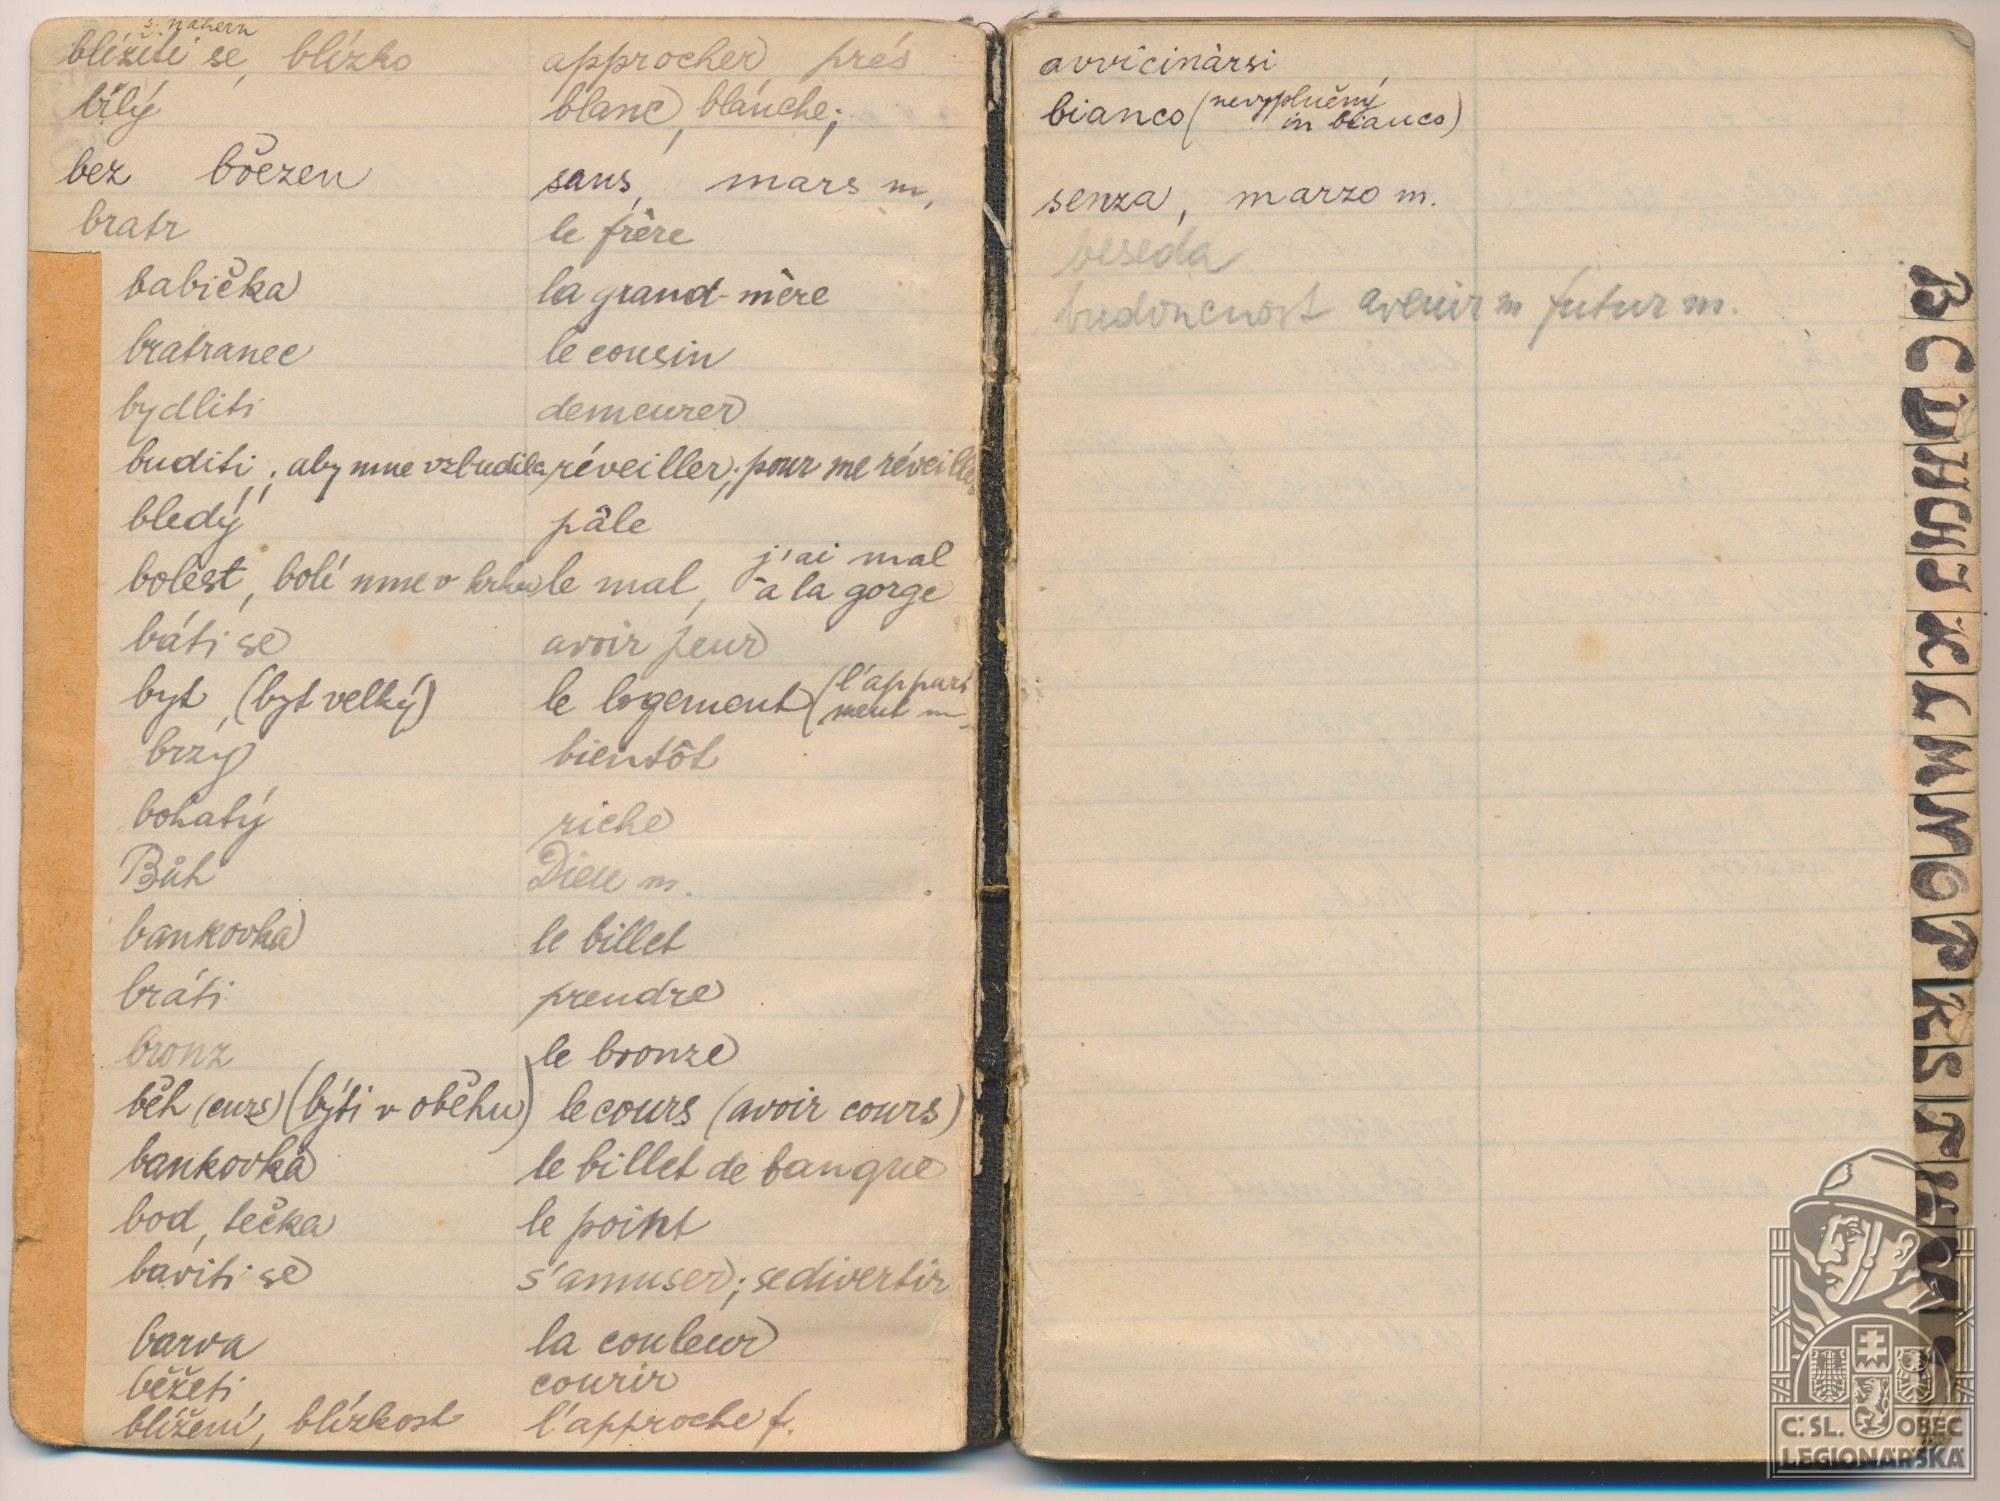 s. nähern
blížiti se, blízko approcher près
bílý blanc, blanche;
bez březen sans, mars m,
bratr le frère
babička la grand-mère
bratranec le cousin
bydliti demeurer
buditi; aby mne vzbudila réveiller; pour me réveiller
bledý pâle
bolest, bolí mne v krku le mal, j'ai mal à la gorge
báti se avoir peur
byt, (byt velký) le logement (l'appart ment m.
brzy bientôt
bohatý riche
Bůh Dieu m.
bankovka le billet
bráti prendre
bronz le bronze
běh (curs) (býti v oběhu) le cours (avoir cours)
bankovka le billet de banque
bod, tečka le point
baviti se s'amuser; se divertir
barva la couleur
běžeti courir
blížení, blízkost l'approche f.
avvicinàrsi
bianco (nevyplněný in bianco)
senza, marzo m.
beseda
budoucnost avenir m futur m.
B
C
D
H
CH
J
K
L
M
N
O
P
R
S
T
Č.SL. OBEC
LEGIONÁŘSKÁ